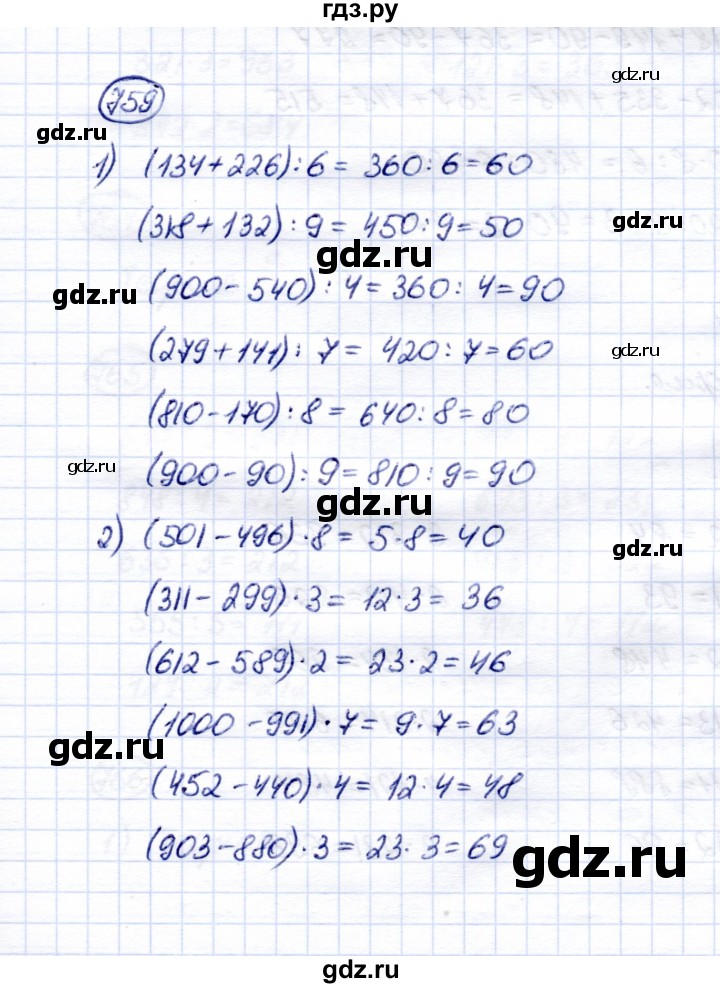 гдз.ру
gdz.ru
759
gdz.ru
1) (134+226):6= 360:6=60
(318+132):9= 450:9=50
gdz.ru
gdz.ru
gdz.ru
(900-540):4=360:4=90
(279+141):7= 420:7=60
gdz.ru
(810-170):8=640:8=80
(900-90):9=810:9=90
gdz.ru
gdz.ru
2) (501-496)·8=5·8=40
gdz.ru
(311-299)·3=12·3=36
(612-589)·2=23·2=46
(1000-991)·7=9·7=63
gdz.ru
(452-440)·4=12·4=48
(903-880)·3=23·3=69
gdz.ru
gdz.ru
gdz.ru